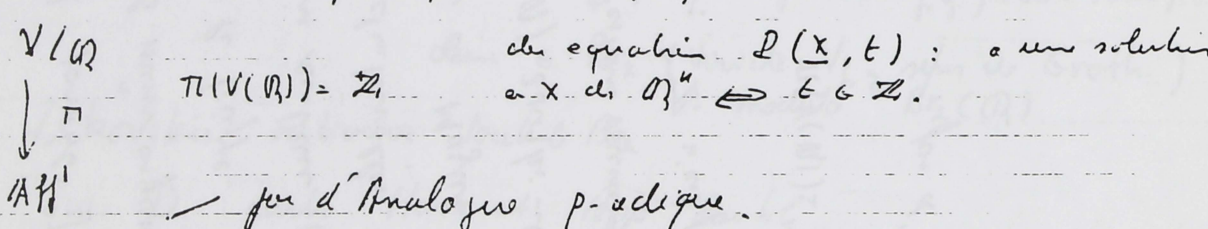 V/ℚ des equation P(x, t) : a une solution
π(V(ℚ)) = ℤ en x ds ℚⁿ ⟺ t ∈ ℤ.
↓ π
Aff¹
— pas d'Analogue p-adique.